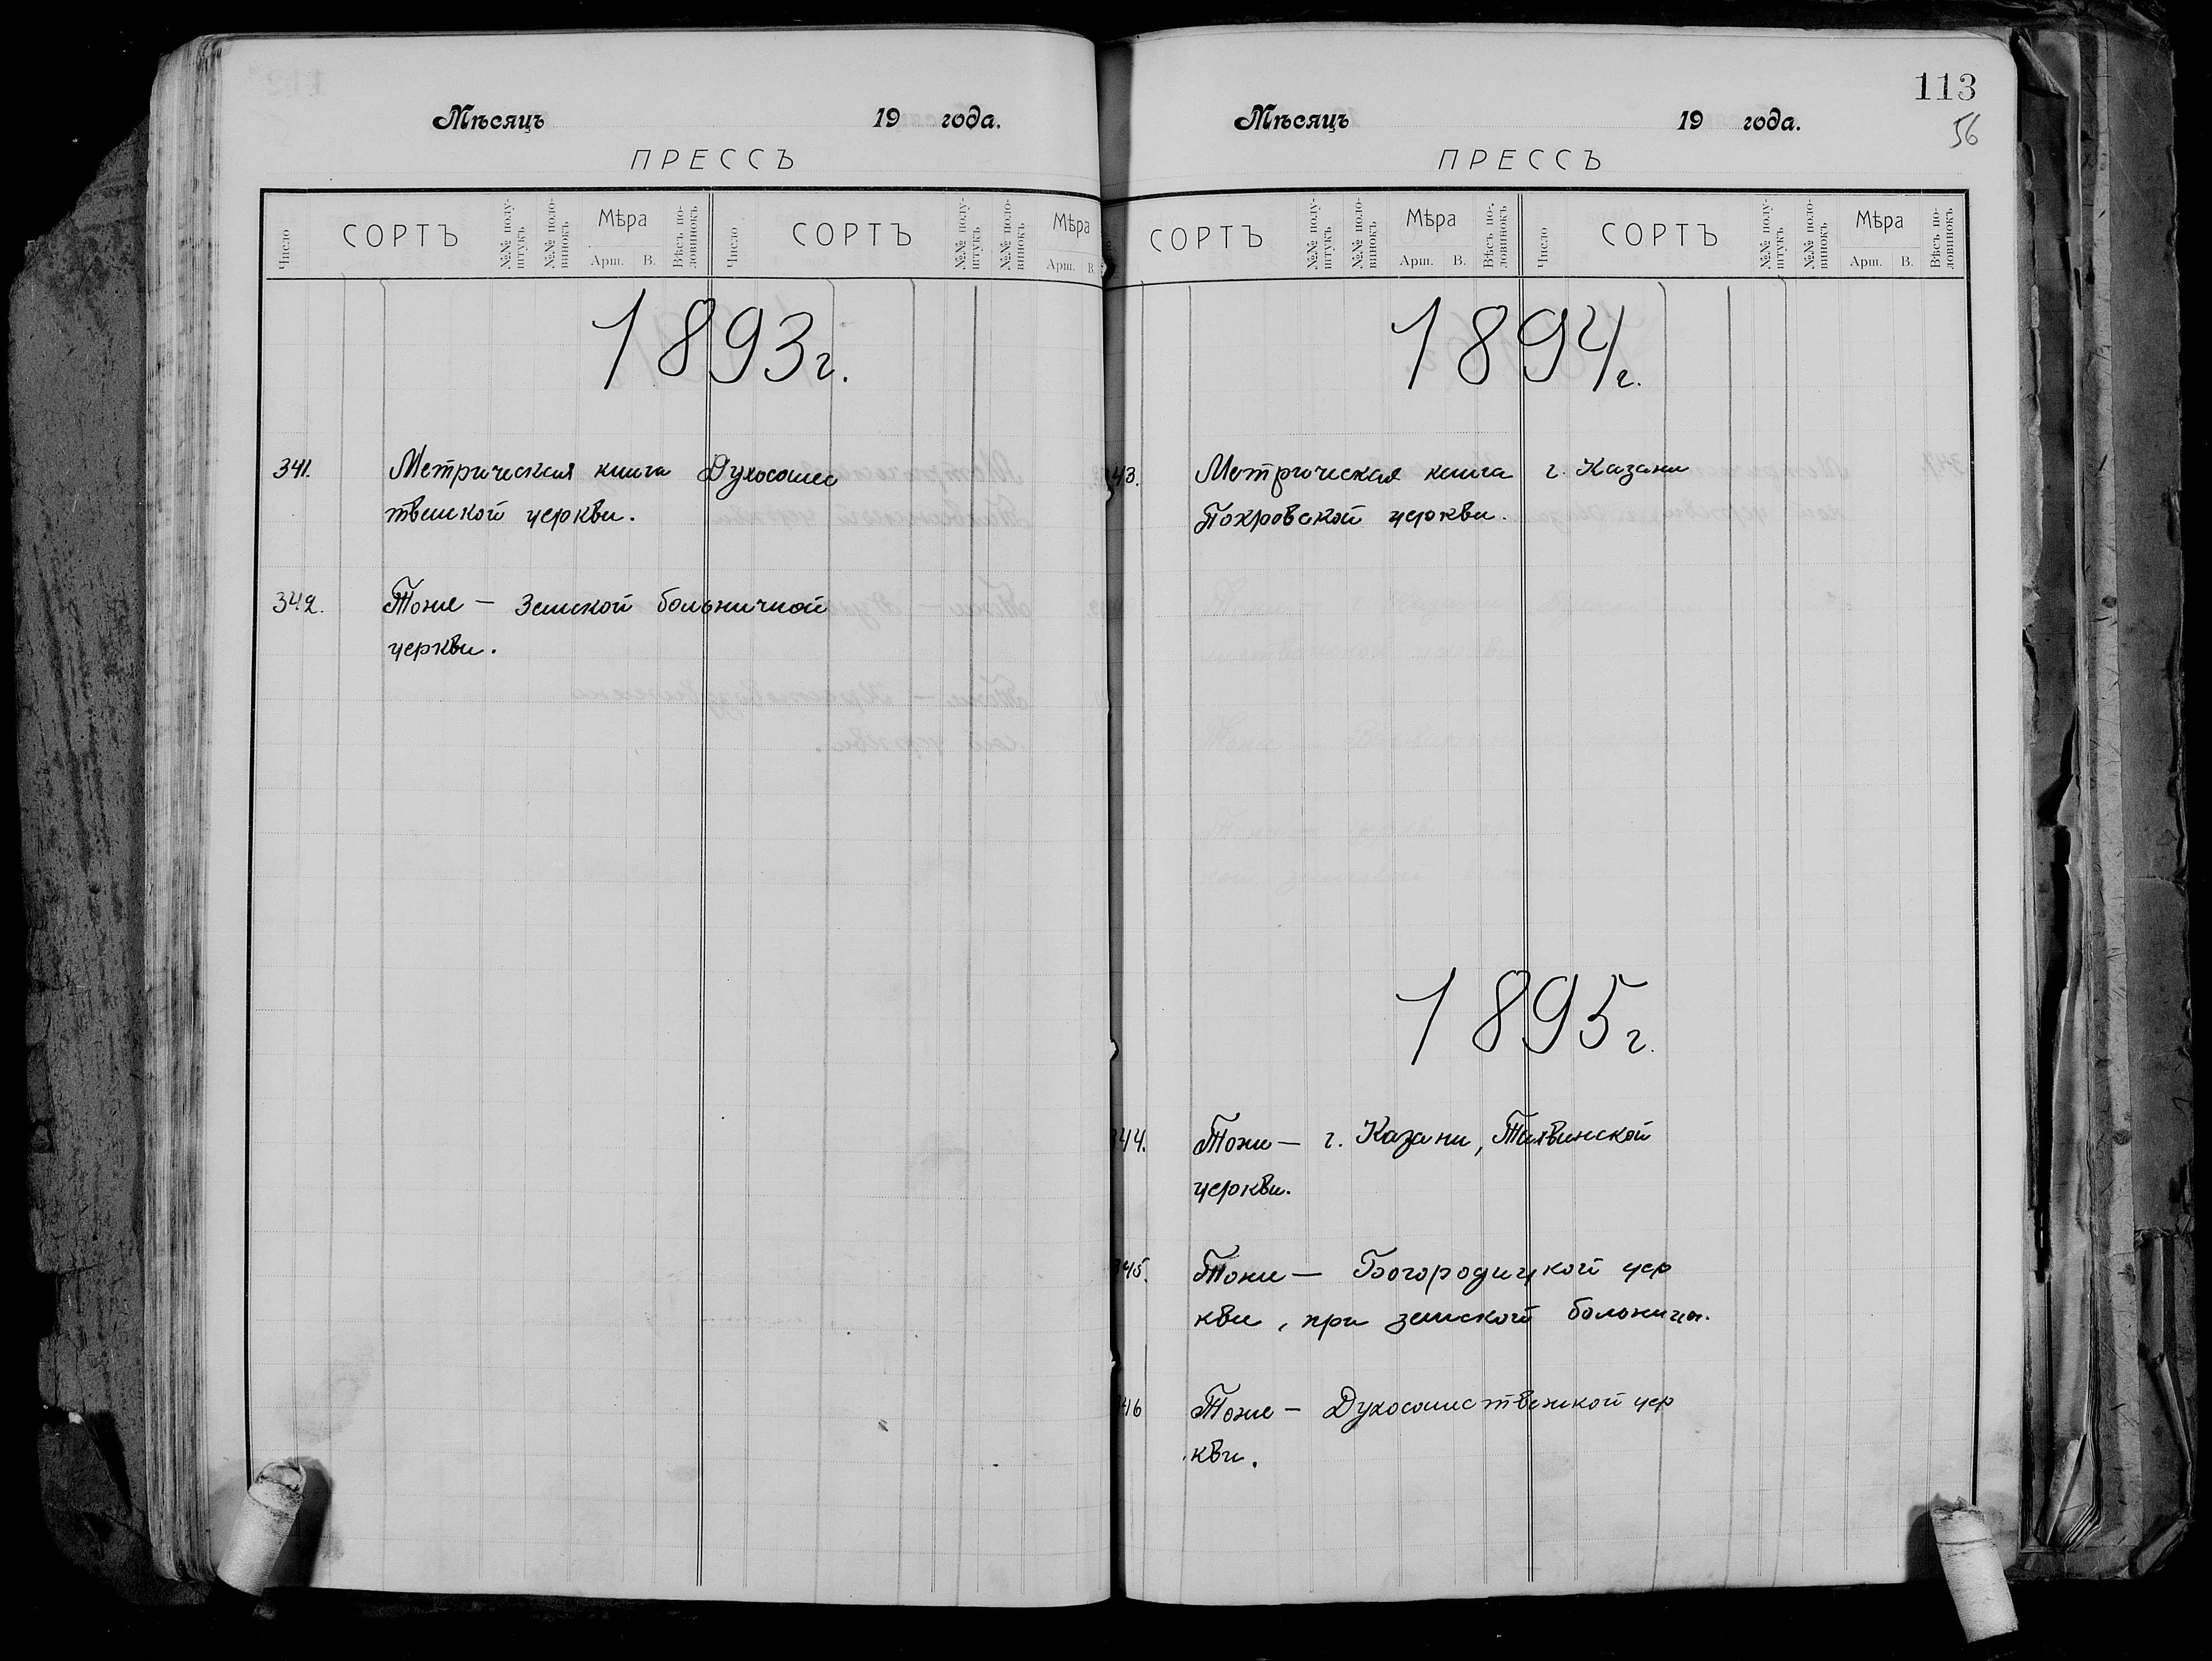 Мѣсяцъ 19 года.
ПРЕССЪ
Число СОРТЪ №№ полу-штукъ №№ поло-винокъ Мѣра Арш. В. Вѣсъ по-ловинокъ Число СОРТЪ №№ полу-штукъ №№ поло-винокъ Мѣра Арш. В.
1893г.
341. Метрическая книга Духосошес
твенской церкви.
342. Тоже – Земской больничной
церкви.
113
56
Мѣсяцъ 19 года.
ПРЕССЪ
СОРТЪ №№ полу-штукъ №№ поло-винокъ Мѣра Арш. В. Вѣсъ по-ловинокъ Число СОРТЪ №№ полу-штукъ №№ поло-винокъ Мѣра Арш. В. Вѣсъ по-ловинокъ
1894г.
43. Метрическая книга г. Казани
Покровской церкви.
1895г.
44. Тоже – г. Казани, Тихвинской
церкви.
45. Тоже – Богородицкой цер
кви, при земской больнице.
46 Тоже – Духосошественской цер
кви.